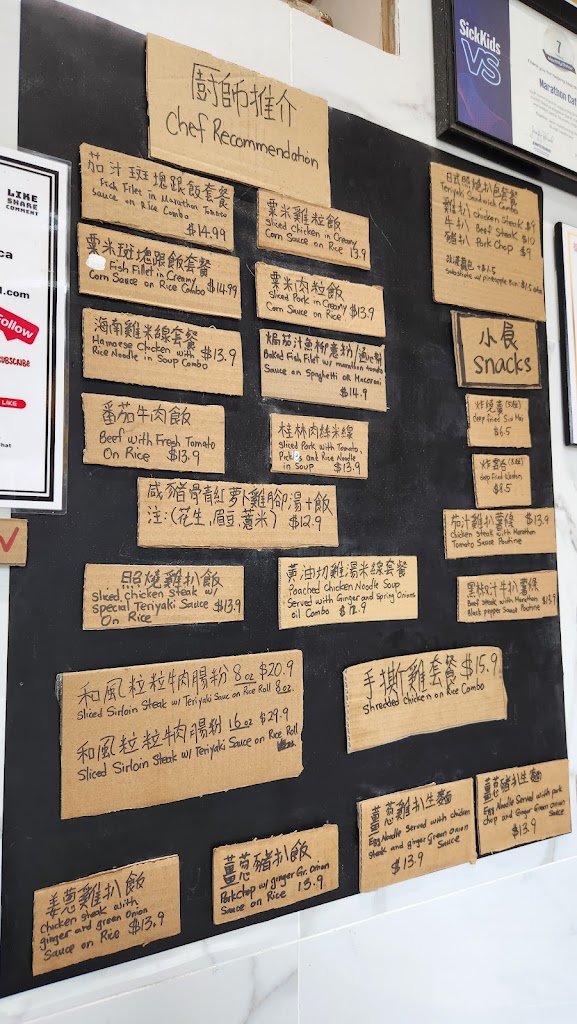 厨師推介
Chef Recommendation
SickKids
VS
7
Marathon Caf
LIKE
SHARE
COMMENT
ca
l.com
Follow
SUBSCRIBE
LIKE
chat
茄汁斑塊跟飯套餐
Fish Filet in Marathon Tomato
Sauce on Rice Combo
$14.99
粟米雞粒飯
Sliced Chicken in Creamy
Corn Sauce on Rice 13.9
日式照燒扒包套餐
Teriyaki Sandwich Combo
雞扒 chicken Steak $9
牛扒 Beef Steak $10
豬扒 Pork Chop $9
菠蘿包 +$1.5
Substitute w/ pineapple Bun
粟米斑塊跟飯套餐
Fish Fillet in Creamy
Corn Sauce on Rice Combo $14.99
粟米肉粒飯
Sliced Pork in Creamy
Corn Sauce on Rice $13.9
小食
Snacks
海南雞米線套餐
Hainanese Chicken with
Rice Noodle in Soup Combo $13.9
焗茄汁魚柳意粉
Baked Fish Filet w/ marathon tomato
Sauce on Spaghetti or Macaroni
$14.9
炸燒賣
deep fried Siu Mai
$6.5
番茄牛肉飯
Beef with Fresh Tomato
On Rice $13.9
桂林肉絲米線
Sliced Pork with Tomato,
and Rice Noodle
in Soup $13.9
炸雲吞
deep fried Wonton
$8.5
咸豬骨青紅萝卜雞腳湯+飯
注:(花生,眉豆,薏米) $12.9
茄汁雞扒薯條 $13.9
chicken steak with Marathon
Tomato Sauce Poutine
照燒雞扒飯
Sliced chicken steak w/
Special Teriyaki Sauce $13.9
On Rice
黃油切雞湯米線套餐
Poached Chicken Noodle Soup
Served with Ginger and Spring Onions
oil Combo
黑椒汁牛扒薯條
Beef steak with Marathon $13.9
Black pepper Sauce Poutine
和風粒粒牛肉腸粉 8oz $20.9
Sliced Sirloin Steak w/ Teriyaki Sauce on Rice Roll 8oz.
和風粒粒牛肉腸粉 16oz $29.9
Sliced Sirloin Steak w/ Teriyaki Sauce on Rice Roll
手撕雞套餐 $15.9
Shredded Chicken on Rice Combo
姜蔥雞扒飯
chicken steak with
ginger and green onion
Sauce on Rice $13.9
薑蔥豬扒飯
Porkchop w/ ginger Gr. onion
Sauce on Rice 13.9
薑蔥雞扒生麵
Egg Noodle Served with chicken
Steak and ginger Green onion
Sauce
$13.9
薑蔥豬扒生麵
Egg Noodle Served with pork
chop and Ginger Green onion
Sauce
$13.9